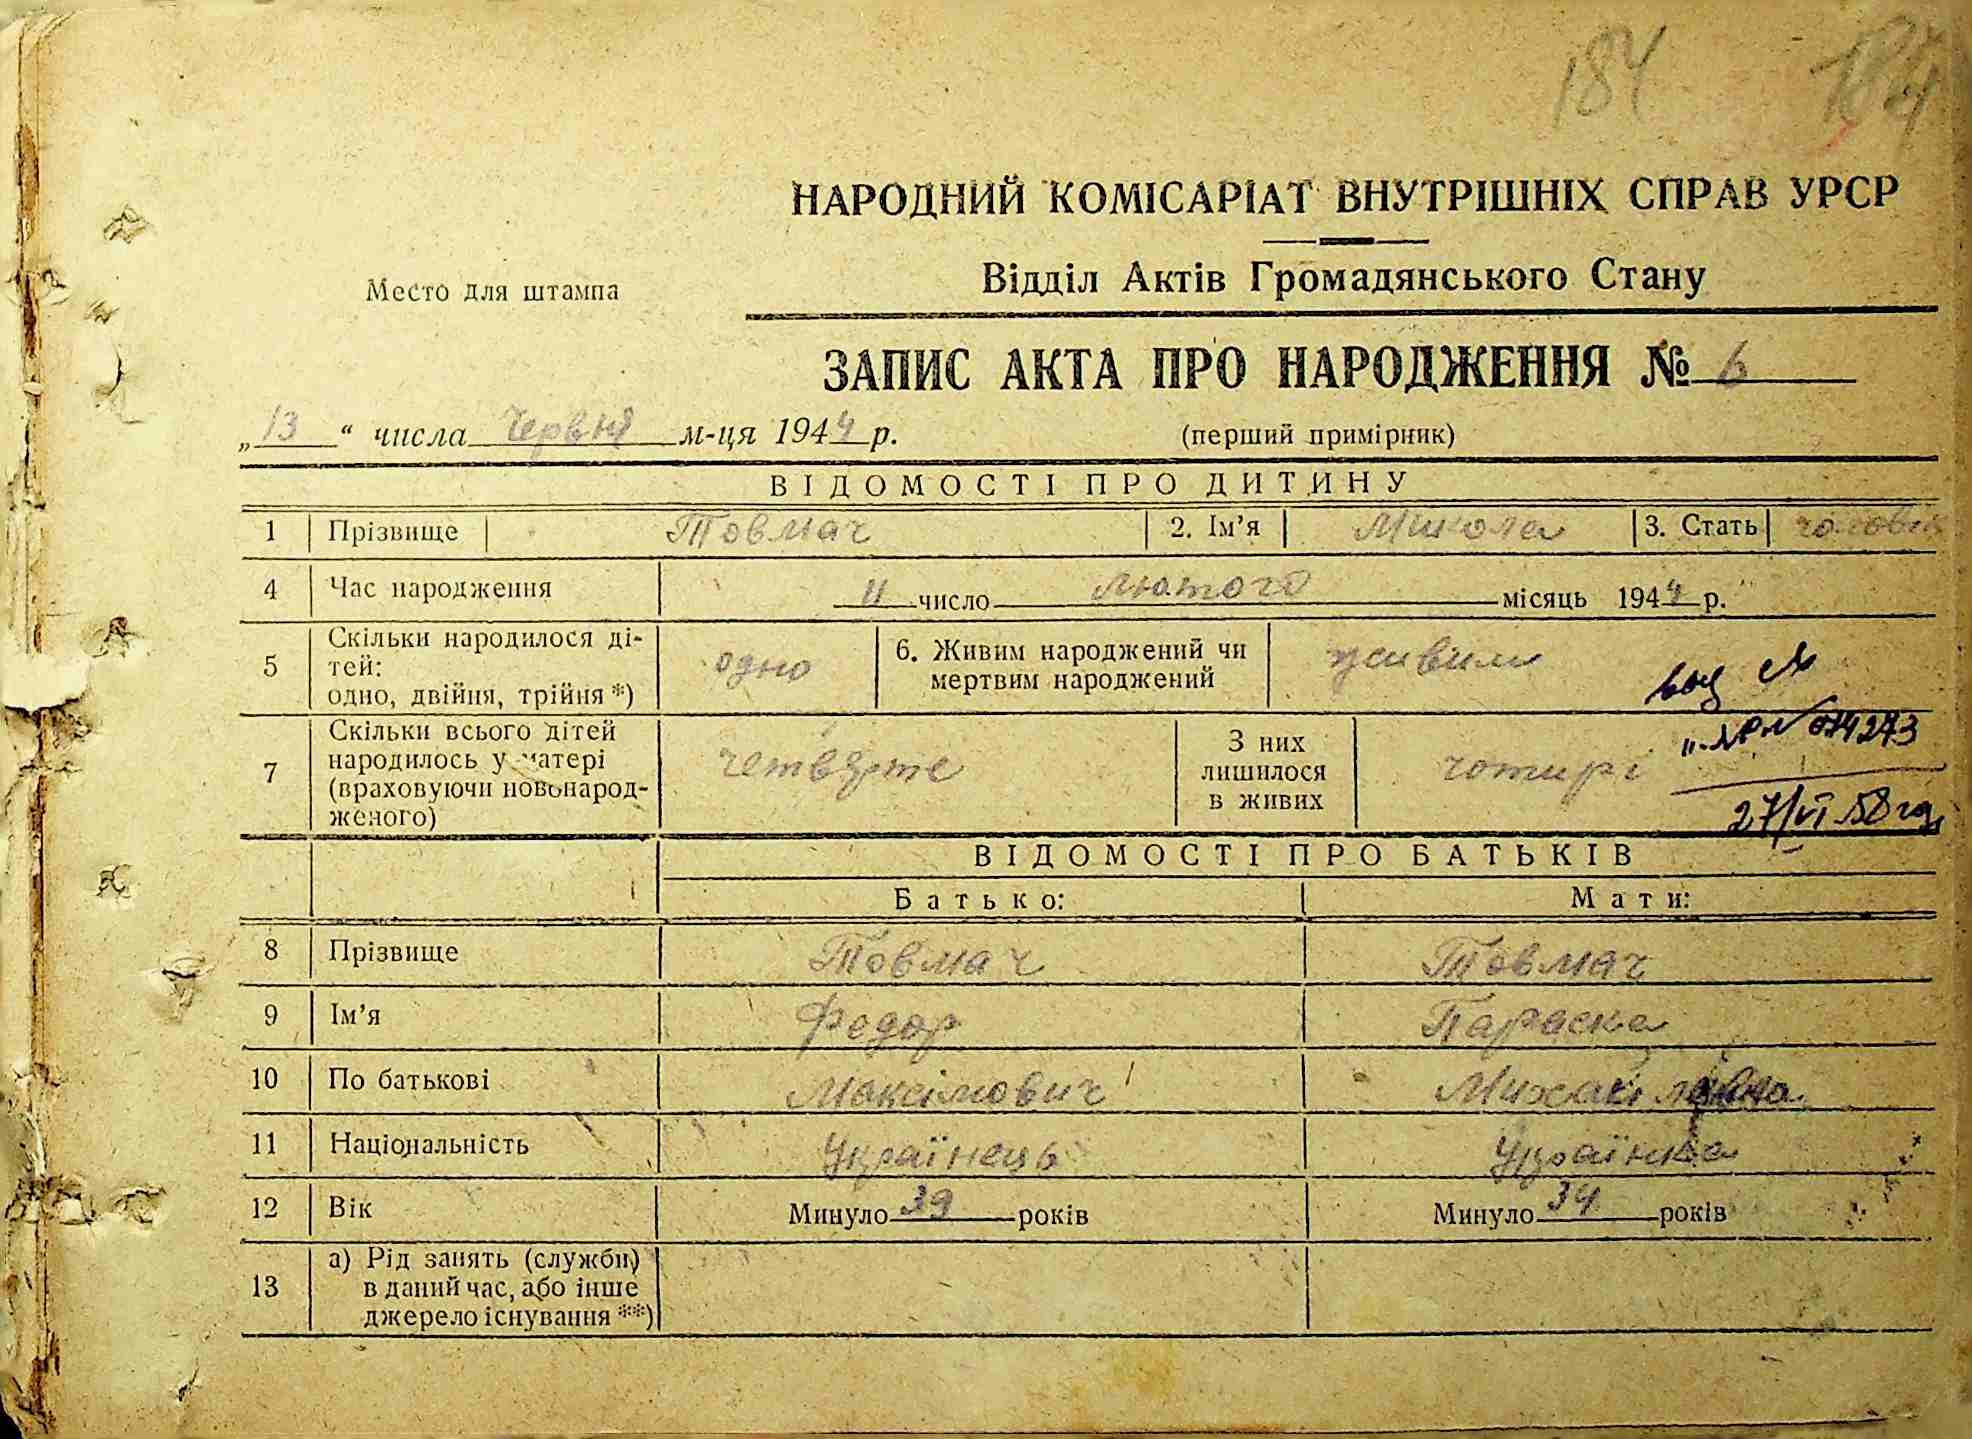 184 184
НАРОДНИЙ КОМІСАРІАТ ВНУТРІШНІХ СПРАВ УРСР
Відділ Актів Громадянського Стану
Место для штампа
ЗАПИС АКТА ПРО НАРОДЖЕННЯ № 6
„13“ числа Червня м-ця 1944 р. (перший примірник)
ВІДОМОСТІ ПРО ДИТИНУ
1 Прізвище Товмач 2. Ім'я Микола 3. Стать чоловіч
4 Час народження 11 число лютого місяць 1944 р.
5 Скільки народилося ді-
тей:
одно, двійня, трійня *) одно 6. Живим народжений чи
мертвим народжений живим
7 Скільки всього дітей
народилось у матері
(враховуючи новонарод-
женого) четверте З них
лишилося
в живих чотирі
074273
27/VI 58 год
ВІДОМОСТІ ПРО БАТЬКІВ
Батько: Мати:
8 Прізвище Товмач Товмач
9 Ім'я Федор Параска
10 По батькові Максімович Михайлівна
11 Національність Українець Українка
12 Вік Минуло 39 років Минуло 34 років
13 а) Рід занять (служби)
в даний час, або інше
джерело існування **)